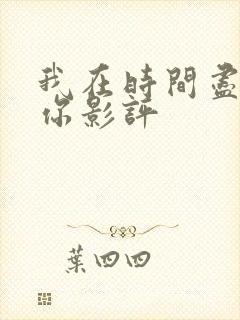 我在時間盡
你影評
葉四四